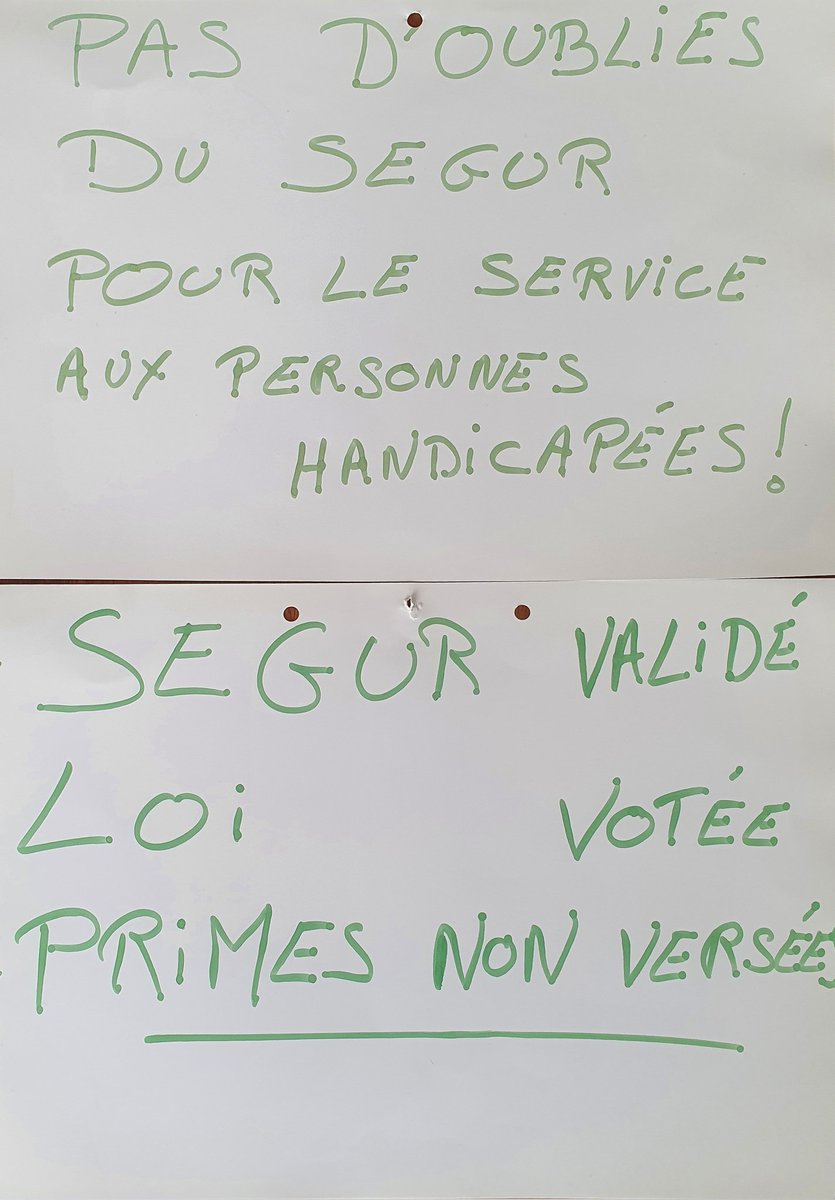 PAS D'OUBLIES
DU SEGUR
POUR LE SERVICE
AUX PERSONNES
HANDICAPÉES !
SEGUR VALIDÉ
LOI VOTÉE
PRIMES NON VERSÉES